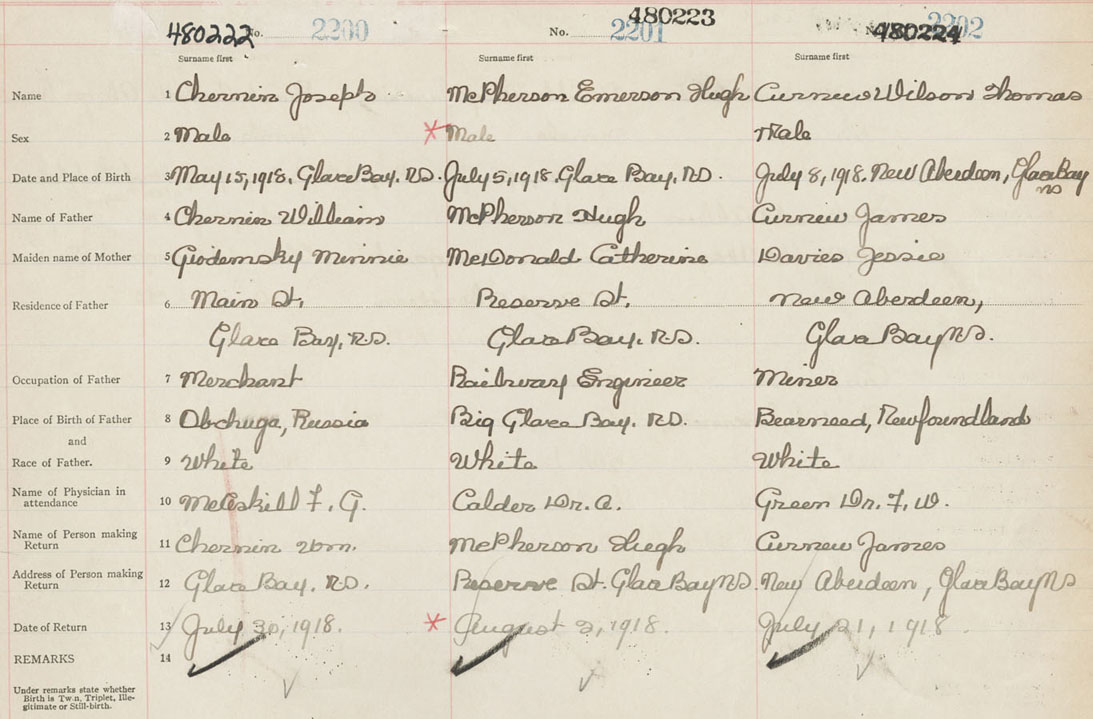 480222 No. 2200 No. 2201 480223 480224 2202
Surname first Surname first Surname first
Name 1 Chernin Joseph McPherson Emerson Hugh Curnew Wilson Thomas
Sex 2 Male * Male Male
Date and Place of Birth 3 May 15, 1918. Glace Bay. N.S. July 5, 1918. Glace Bay. N.S. July 8, 1918. New Aberdeen, Glace Bay
NS
Name of Father 4 Chernin William McPherson Hugh Curnew James
Maiden name of Mother 5 Giodemsky Minnie McDonald Catherine Davies Jessie
Residence of Father 6 Main St. Reserve St. New Aberdeen,
Glace Bay. N.S. Glace Bay. N.S. Glace Bay NS.
Occupation of Father 7 Merchant Railway Engineer Miner
Place of Birth of Father 8 Obchuga, Russia Big Glace Bay. N.S. Bearneed, Newfoundland
and
Race of Father. 9 White White White
Name of Physician in
attendance 10 McAskill F. G. Calder Dr. A. Green Dr. F. W.
Name of Person making
Return 11 Chernin Wm. McPherson Hugh Curnew James
Address of Person making
Return 12 Glace Bay. N.S. Reserve St. Glace Bay NS. New Aberdeen, Glace Bay NS
Date of Return 13 July 30, 1918. * August 3, 1918. July 21, 1918
REMARKS 14
Under remarks state whether
Birth is Twin, Triplet, Ille-
gitimate or Still-birth.